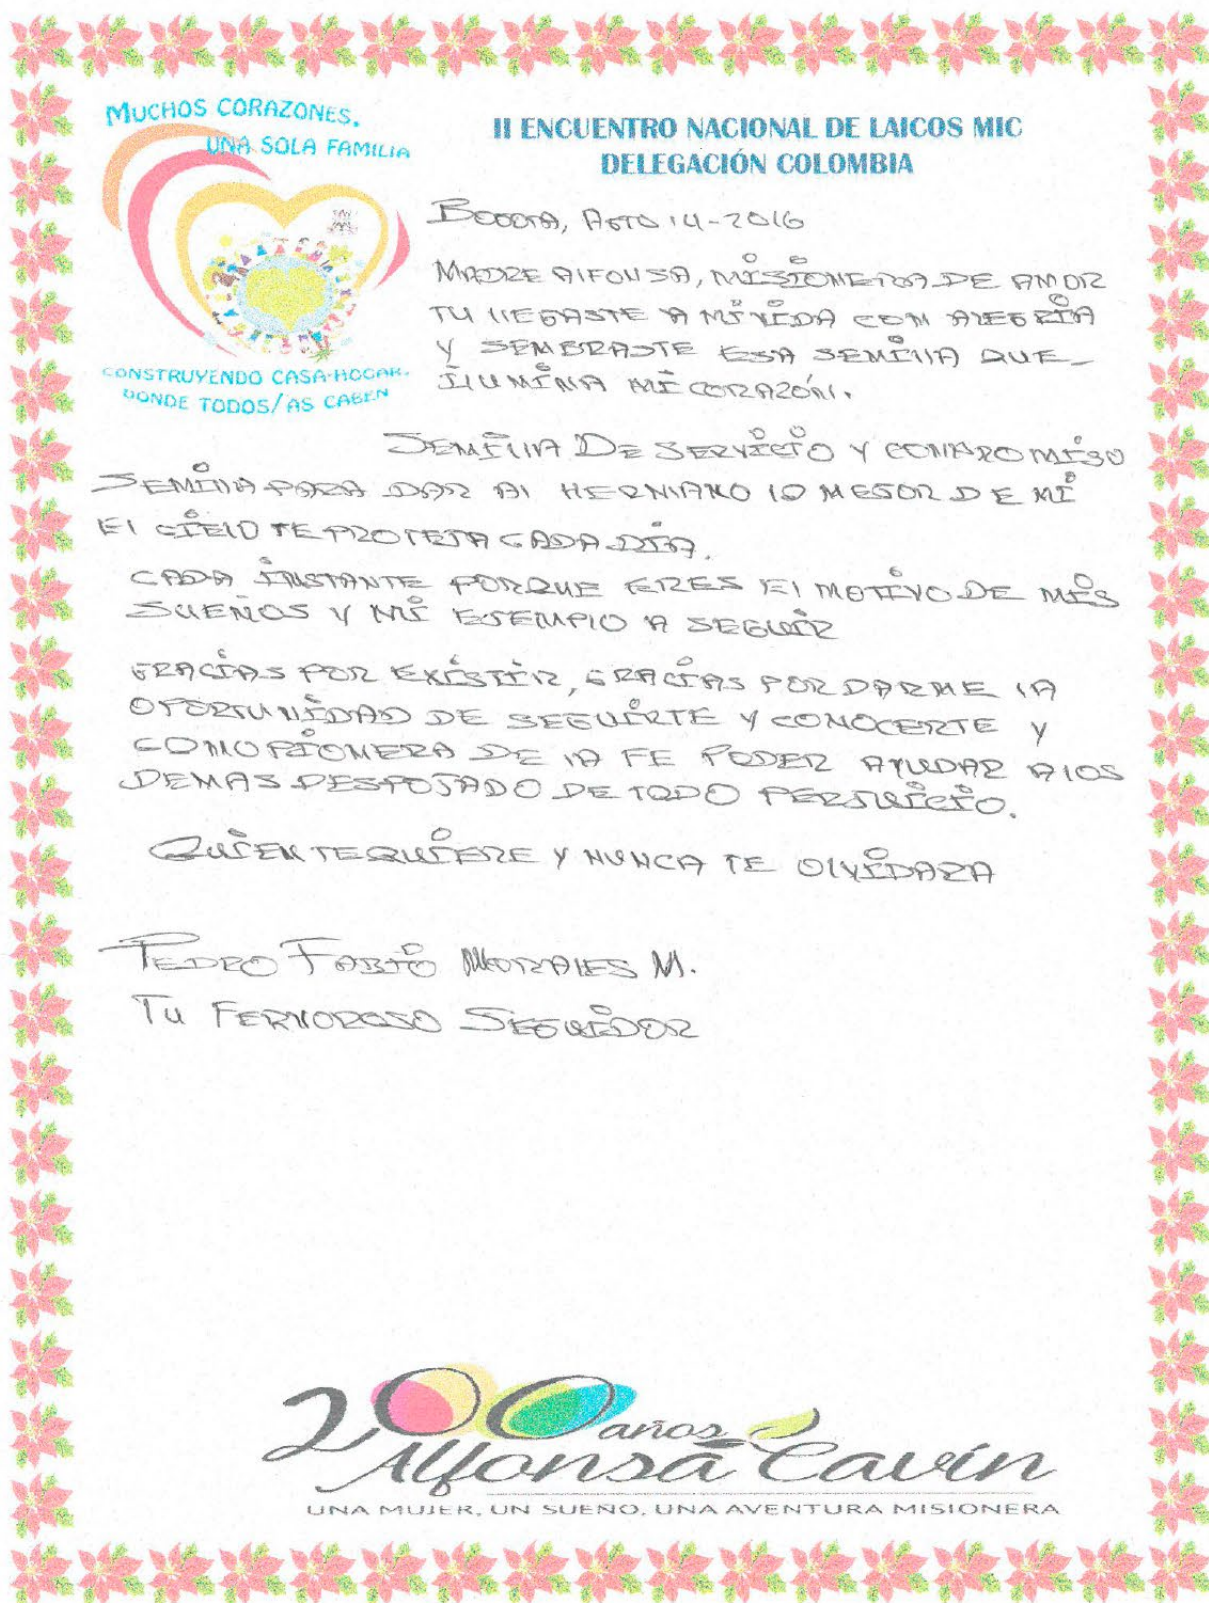 MUCHOS CORAZONES,
UNA SOLA FAMILIA
CONSTRUYENDO CASA-HOGAR,
DONDE TODOS/AS CABEN
II ENCUENTRO NACIONAL DE LAICOS MIC
DELEGACIÓN COLOMBIA
BOGOTA, AGTO 14-2016
MADRE AlFONSA, MISIONERA DE AMOR
TU llEGASTE A MI VIDA CON AlEGRIA
Y SEMBRASTE ESA SEMIllA QUE
IlUMINA MI CORAZÓN.
SEMIllA DE SERVICIO Y COMPROMISO
SEMIllA PARA DAR Al HERMANO lO MEJOR DE MI
El CIElO TE PROTEJA CADA DIA.
CADA INSTANTE PORQUE ERES El MOTIVO DE MIS
SUEÑOS Y MI EJEMPlO A SEGUIR
GRACIAS POR EXISTIR, GRACIAS POR DARME lA
OPORTUNIDAD DE SEGUIRTE Y CONOCERTE Y
COMO PIONERA DE lA FE PODER AYUDAR A lOS
DEMAS DESPOJADO DE TODO PERJUICIO.
QUIEN TE QUIERE Y NUNCA TE OlVIDARA
PEDRO FABIO MORAlES M.
TU FERVOROSO SEGUIDOR
200 años
Alfonsa Cavín
UNA MUJER, UN SUEÑO, UNA AVENTURA MISIONERA